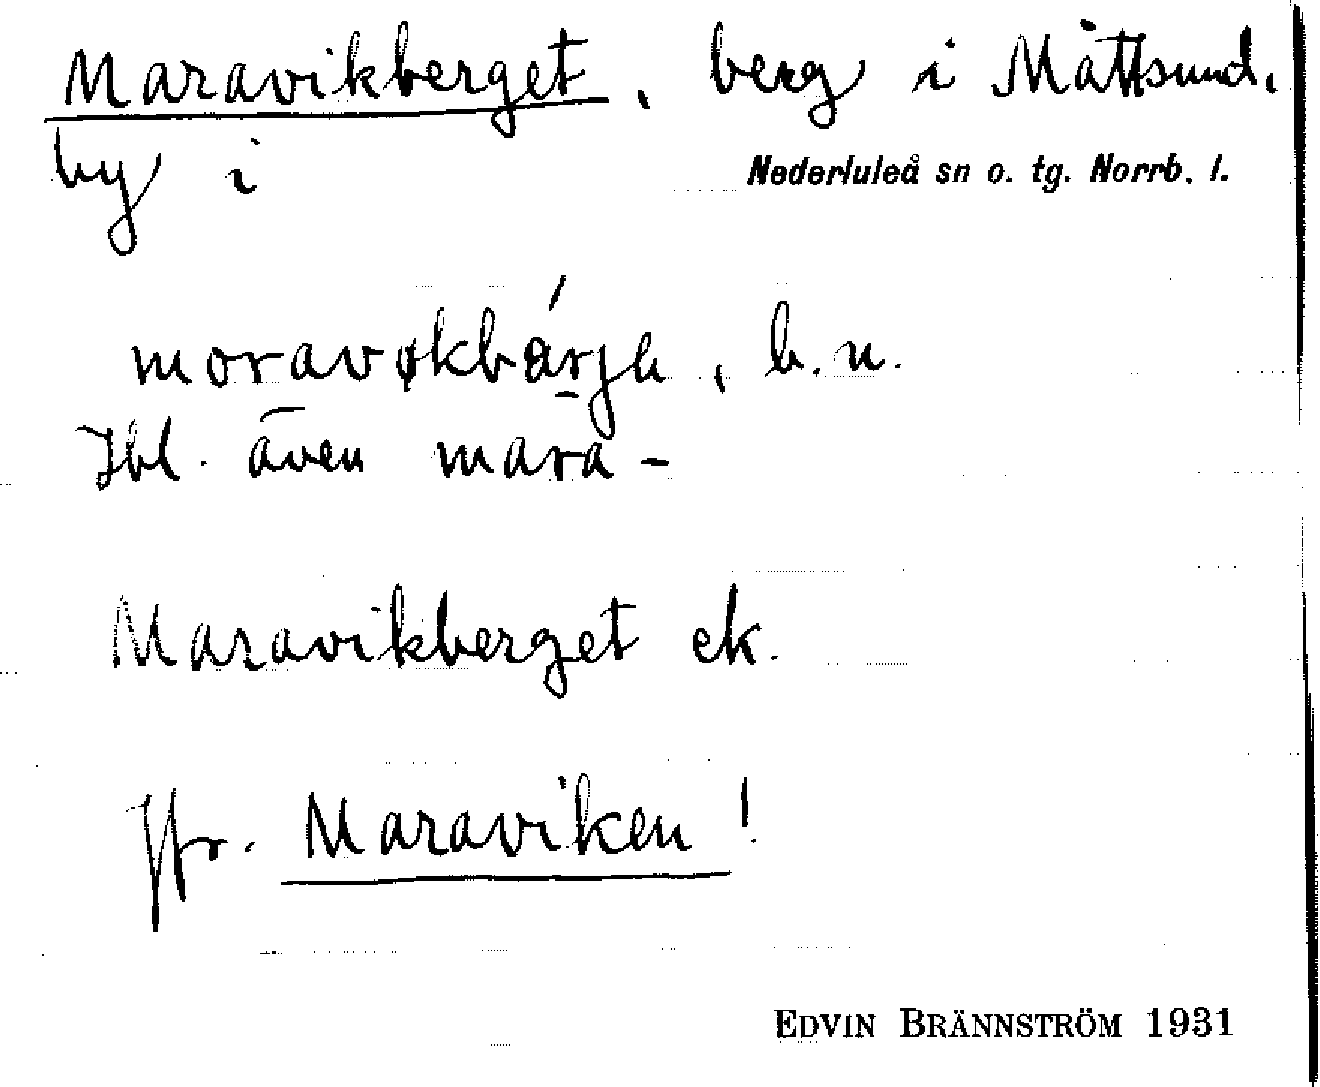 Maravikberget, berg i Måttsund,
by i Nederluleå sn o. tg. Norrb. l.
moravøkbárja, b. n.
Ibl. även mara-
Maravikberget ek.
Jfr. Maraviken!
EDVIN BRÄNNSTRÖM 1931